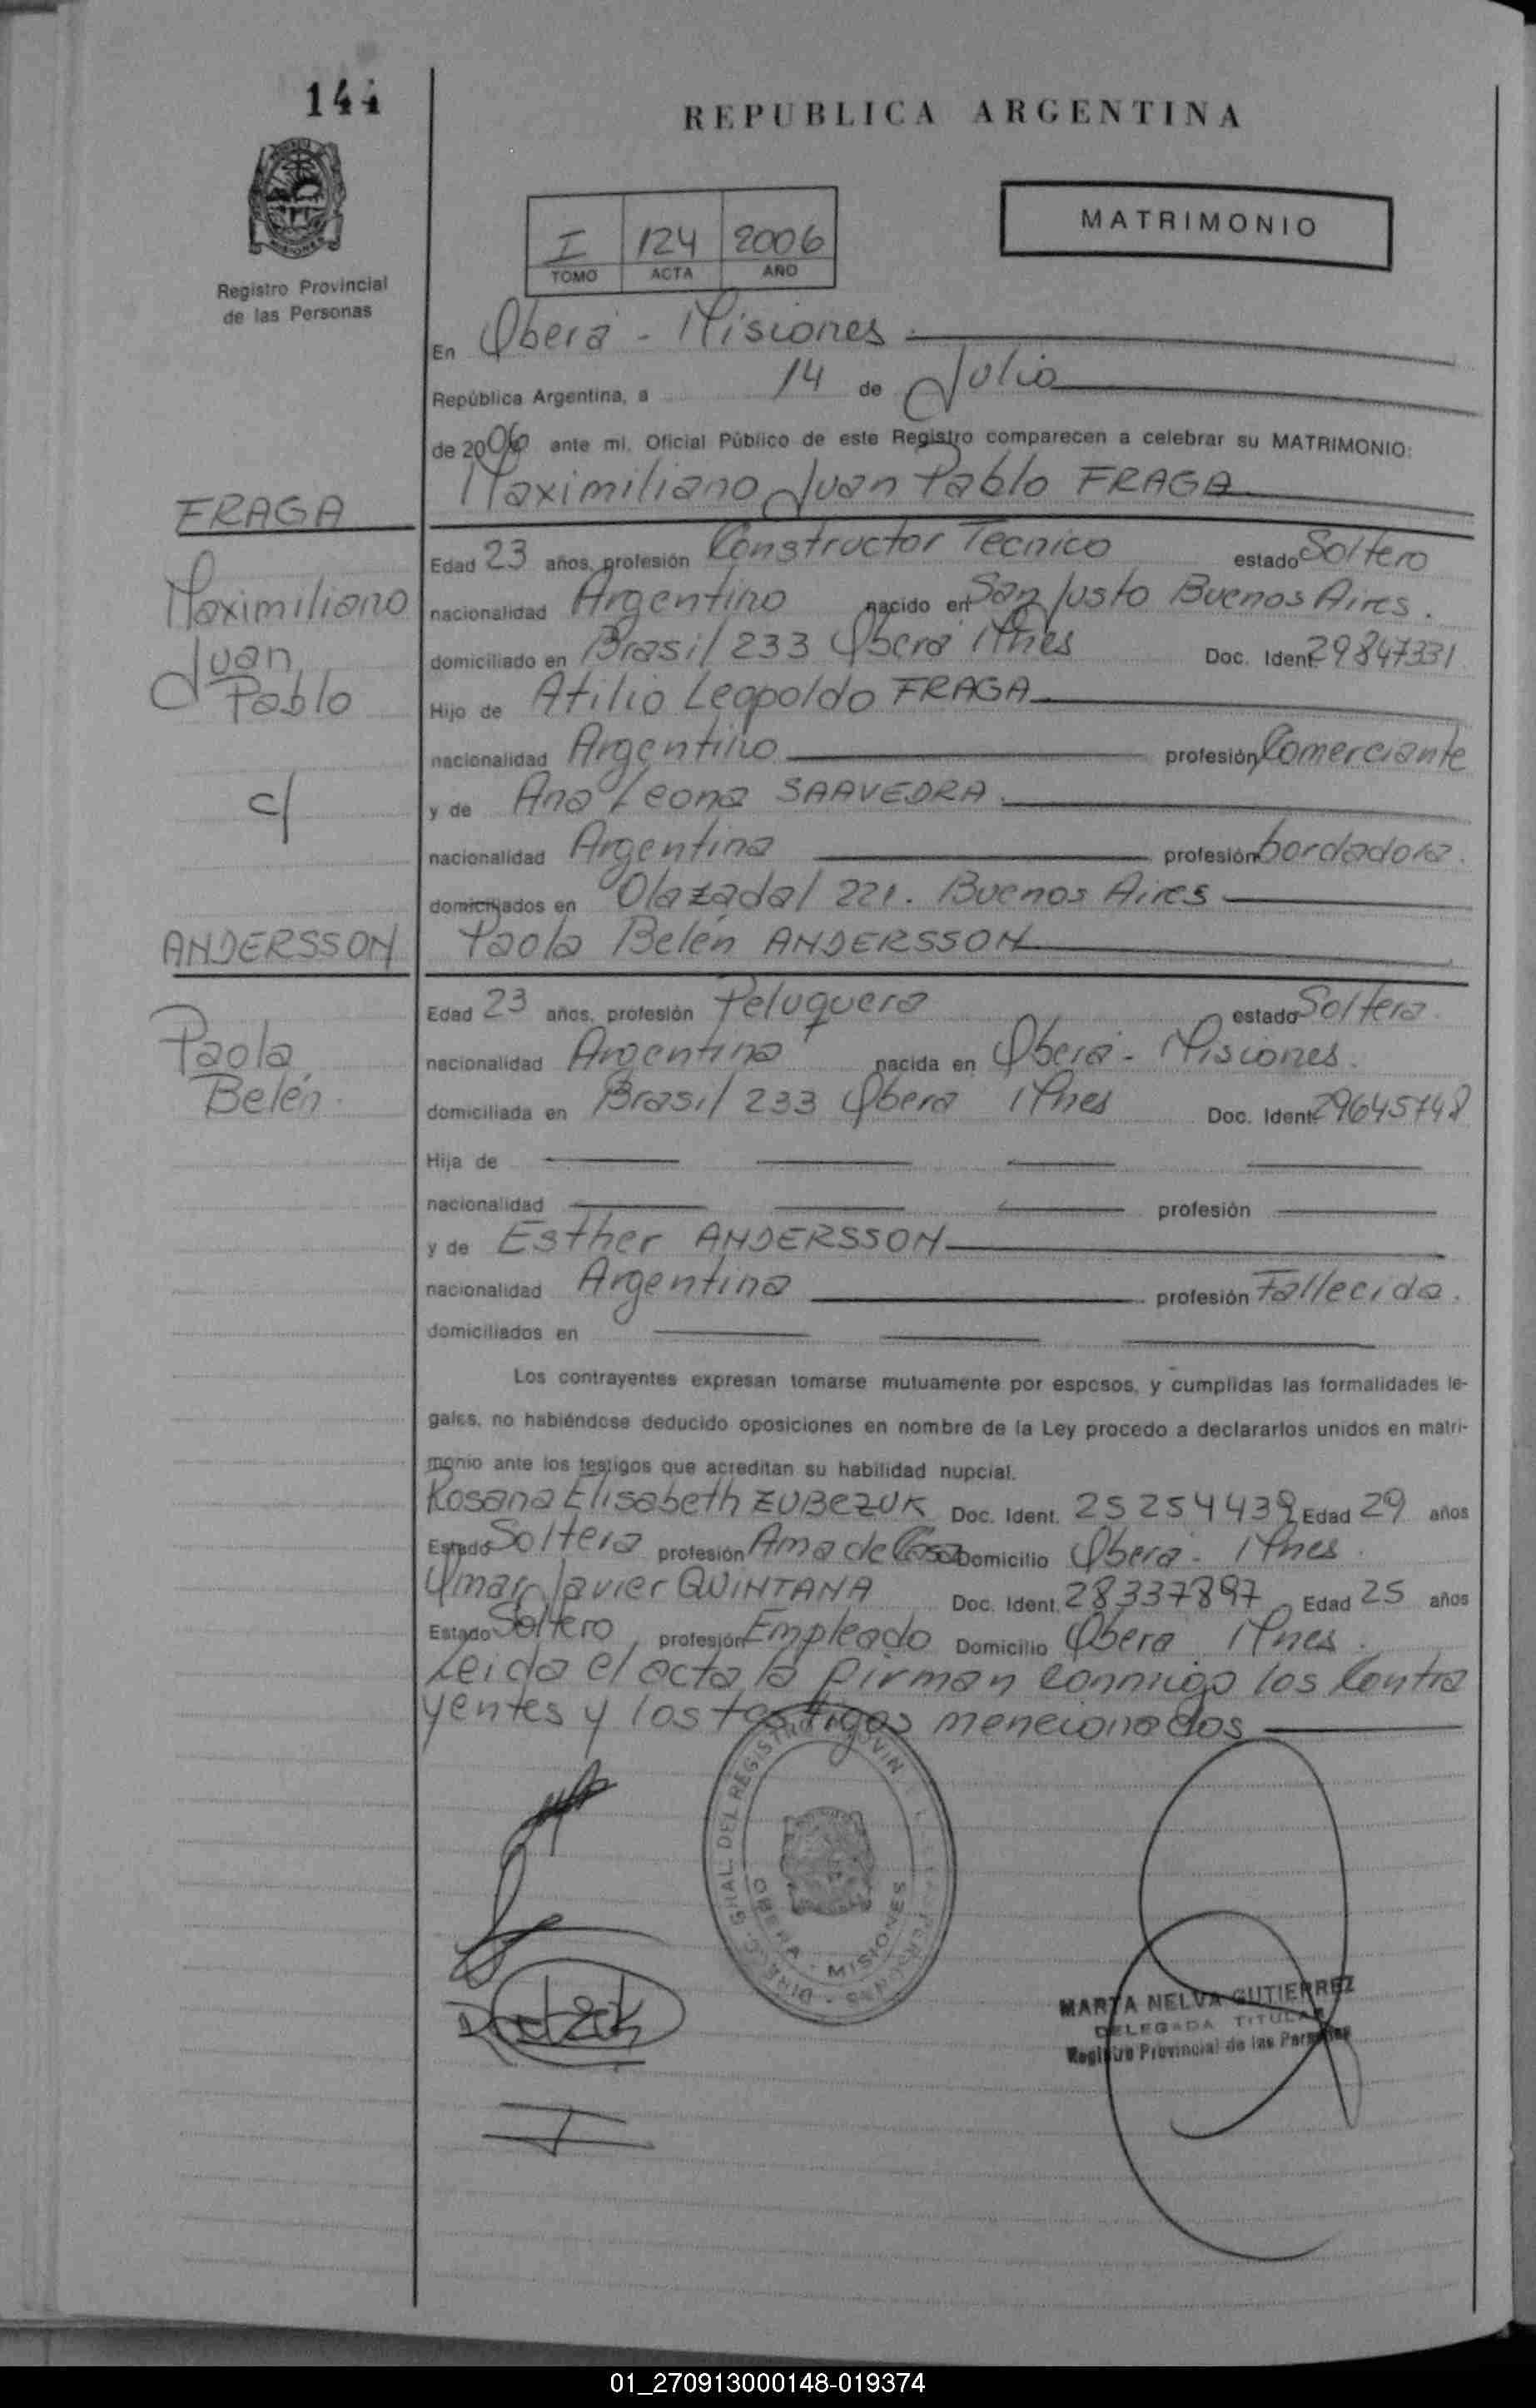 144
REPUBLICA ARGENTINA
I 124 2006
TOMO ACTA AÑO
MATRIMONIO
Registro Provincial
de las Personas
En Oberá - Misiones
República Argentina, a 14 de Julio
de 2006 ante mí, Oficial Público de este Registro comparecen a celebrar su MATRIMONIO:
Maximiliano Juan Pablo FRAGA
FRAGA
Maximiliano
Juan
Pablo
c/
ANDERSSON
Paola
Belén.
Edad 23 años, profesión Constructor Tecnico estado Soltero
nacionalidad Argentino nacido en San Justo Buenos Aires.
domiciliado en Brasil 233 Oberá Mnes Doc. Ident. 29847331
Hijo de Atilio Leopoldo FRAGA
nacionalidad Argentino profesión Comerciante
y de Ana Leona SAAVEDRA
nacionalidad Argentina profesión bordadora.
domiciliados en Olazadal 221. Buenos Aires
Paola Belén ANDERSSON
Edad 23 años, profesión Peluquera estado Soltera.
nacionalidad Argentina nacida en Oberá - Misiones.
domiciliada en Brasil 233 Oberá Mnes Doc. Ident. 29645748
Hija de
nacionalidad profesión
y de Esther ANDERSSON
nacionalidad Argentina profesión Fallecida.
domiciliados en
Los contrayentes expresan tomarse mutuamente por esposos, y cumplidas las formalidades le-
gales, no habiéndose deducido oposiciones en nombre de la Ley procedo a declararlos unidos en matri-
monio ante los testigos que acreditan su habilidad nupcial.
Rosana Elisabeth ZUBEZUK Doc. Ident. 25254439 Edad 29 años
Estado Soltera profesión Ama de Casa Domicilio Oberá - Mnes.
Omar Javier QUINTANA Doc. Ident. 28337897 Edad 25 años
Estado Soltero profesión Empleado Domicilio Oberá Mnes.
Leida el acta la firman conmigo los Contra
yentes y los testigos mencionados
OBERA - MISIONES
MARTA NELVA GUTIERREZ
DELEGADA TITULAR
Registro Provincial de las Personas
01_270913000148-019374